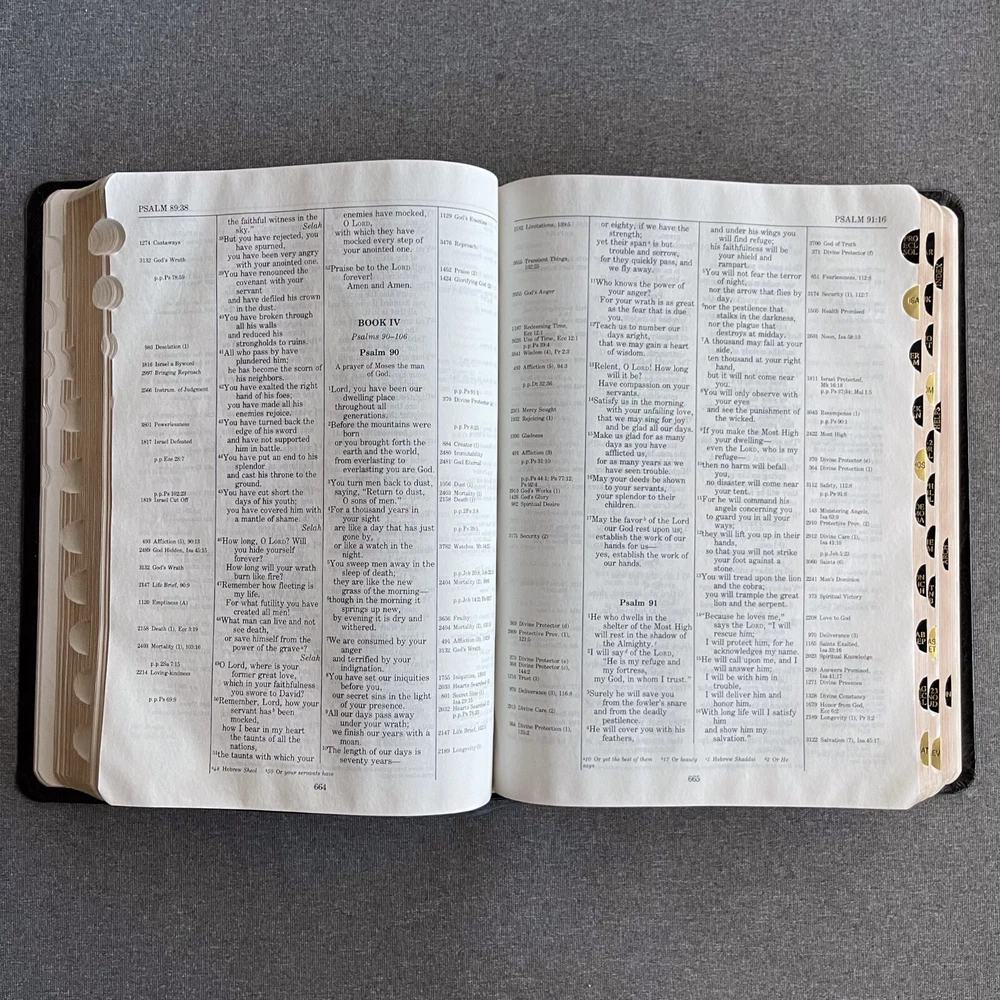 PSALM 89:38
1274 Castaways
3132 God's Wrath
p.p.Ps 78:59
983 Desolation (1)
1816 Israel a Byword
2997 Bringing Reproach
2566 Instrum. of Judgment
3801 Powerlessness
1817 Israel Defeated
p.p.Eze 28:7
p.p.Ps 102:23
1819 Israel Cut Off
493 Affliction (5), 90:13
2489 God Hidden, Isa 45:15
3132 God's Wrath
2147 Life Brief, 90:9
1120 Emptiness (A)
2158 Death (1), Ecc 3:19
2403 Mortality (1), 103:16
p.p.2Sa 7:15
2214 Loving-kindness
p.p.Ps 69:9
the faithful witness in the
sky." Selah
38But you have rejected, you
have spurned,
you have been very angry
with your anointed one.
39You have renounced the
covenant with your
servant
and have defiled his crown
in the dust.
40You have broken through
all his walls
and reduced his
strongholds to ruins.
41All who pass by have
plundered him;
he has become the scorn of
his neighbors.
42You have exalted the right
hand of his foes;
you have made all his
enemies rejoice.
43You have turned back the
edge of his sword
and have not supported
him in battle.
44You have put an end to his
splendor
and cast his throne to the
ground.
45You have cut short the
days of his youth;
you have covered him with
a mantle of shame.
Selah
46How long, O LORD? Will
you hide yourself
forever?
How long will your wrath
burn like fire?
47Remember how fleeting is
my life.
For what futility you have
created all men!
48What man can live and not
see death,
or save himself from the
power of the grave?
Selah
49O Lord, where is your
former great love,
which in your faithfulness
you swore to David?
50Remember, Lord, how your
servant has been
mocked,
how I bear in my heart
the taunts of all the
nations,
51the taunts with which your
enemies have mocked,
O LORD,
with which they have
mocked every step of
your anointed one.
52Praise be to the LORD
forever!
Amen and Amen.
BOOK IV
Psalms 90–106
Psalm 90
A prayer of Moses the man
of God.
1Lord, you have been our
dwelling place
throughout all
generations.
2Before the mountains were
born
or you brought forth the
earth and the world,
from everlasting to
everlasting you are God.
3You turn men back to dust,
saying, "Return to dust,
O sons of men."
4For a thousand years in
your sight
are like a day that has just
gone by,
or like a watch in the
night.
5You sweep men away in the
sleep of death;
they are like the new
grass of the morning—
6though in the morning it
springs up new,
by evening it is dry and
withered.
7We are consumed by your
anger
and terrified by your
indignation.
8You have set our iniquities
before you,
our secret sins in the light
of your presence.
9All our days pass away
under your wrath;
we finish our years with a
moan.
10The length of our days is
seventy years—
1129 God's Enemies
3476 Reproach,
1452 Praise
1434 Glorifying God
p.p.Ps 91:
379 Divine Protector
p.p.Ps 8:25
884 Creator
3480 Immutability
2481 God Eternal
2403 Mortality
2158 Death
3792 Watches,
2404 Mortality (2),
3656 Frailty
2404 Mortality (2),
491 Affliction
3132 God's Wrath
1755 Iniquities,
2033 Hearts Searched
2032 Hearts Searched
2147 Life Brief,
2189 Longevity
48 Hebrew Sheol 50 Or your servants have
664
PSALM 91:16
Limitations, 139:5
Transient Things,
102:25
God's Anger
Redeeming Time,
Ecc 12:1
Use of Time, Ecc 12:1
p.p.Ps 39:4
Wisdom (4), Pr 2:3
492 Affliction (5), 94:3
p.p.Dt 32:36
Mercy Sought
Rejoicing (1)
Gladness
491 Affliction (3)
p.p.Ps 31:10
p.p.Ps 44:1; Ps 77:12;
Ps 92:4
God's Works (1)
God's Glory
Spiritual Desire
3175 Security (2)
369 Divine Protector (s)
Protective Prov. (1),
121:5
Divine Protector (s)
368 Divine Protector (c),
144:2
1216 Trust (3)
970 Deliverance (3), 116:8
2913 Divine Care (2)
364 Divine Protection (1),
125:2
or eighty, if we have the
strength;
yet their span is but
trouble and sorrow,
for they quickly pass, and
we fly away.
11Who knows the power of
your anger?
For your wrath is as great
as the fear that is due
you.
12Teach us to number our
days aright,
that we may gain a heart
of wisdom.
13Relent, O LORD! How long
will it be?
Have compassion on your
servants.
14Satisfy us in the morning
with your unfailing love,
that we may sing for joy
and be glad all our days.
15Make us glad for as many
days as you have
afflicted us,
for as many years as we
have seen trouble.
16May your deeds be shown
to your servants,
your splendor to their
children.
17May the favor of the Lord
our God rest upon us;
establish the work of our
hands for us—
yes, establish the work of
our hands.
Psalm 91
1He who dwells in the
shelter of the Most High
will rest in the shadow of
the Almighty.
2I will say of the LORD,
"He is my refuge and
my fortress,
my God, in whom I trust."
3Surely he will save you
from the fowler's snare
and from the deadly
pestilence.
4He will cover you with his
feathers,
and under his wings you
will find refuge;
his faithfulness will be
your shield and
rampart.
5You will not fear the terror
of night,
nor the arrow that flies by
day,
6nor the pestilence that
stalks in the darkness,
nor the plague that
destroys at midday.
7A thousand may fall at your
side,
ten thousand at your right
hand,
but it will not come near
you.
8You will only observe with
your eyes
and see the punishment of
the wicked.
9If you make the Most High
your dwelling—
even the LORD, who is my
refuge—
10then no harm will befall
you,
no disaster will come near
your tent.
11For he will command his
angels concerning you
to guard you in all your
ways;
12they will lift you up in their
hands,
so that you will not strike
your foot against a
stone.
13You will tread upon the lion
and the cobra;
you will trample the great
lion and the serpent.
14"Because he loves me,"
says the LORD, "I will
rescue him;
I will protect him, for he
acknowledges my name.
15He will call upon me, and I
will answer him;
I will be with him in
trouble,
I will deliver him and
honor him.
16With long life will I satisfy
him
and show him my
salvation."
3700 God of Truth
371 Divine Protector (f)
651 Fearlessness, 112:8
3174 Security (1), 112:7
1506 Health Promised
2601 Noon, Isa 58:10
1811 Israel Protected,
Mk 16:18
p.p.Ps 37:34; Mal 1:5
3043 Recompense (1)
p.p.Ps 90:1
2422 Most High
370 Divine Protector (e)
364 Divine Protection (1)
3112 Safety, 112:8
p.p.Ps 91:6
143 Ministering Angels,
Isa 63:9
2910 Protective Prov. (2)
2912 Divine Care (1),
Isa 41:10
p.p.Job 5:23
3060 Saints (6)
2241 Man's Dominion
373 Spiritual Victory
2208 Love to God
970 Deliverance (3)
1165 Saints Exalted,
Isa 33:16
2023 Spiritual Knowledge
2819 Answers Promised,
Isa 41:17
1271 Divine Presence
1328 Divine Constancy
1679 Honor from God,
Ecc 6:2
2189 Longevity (1), Pr 3:2
3122 Salvation (7), Isa 45:17
10 Or yet the best of them 17 Or beauty 1 Hebrew Shaddai 2 Or He
says
665
PRO
ECL
SOL
ISA